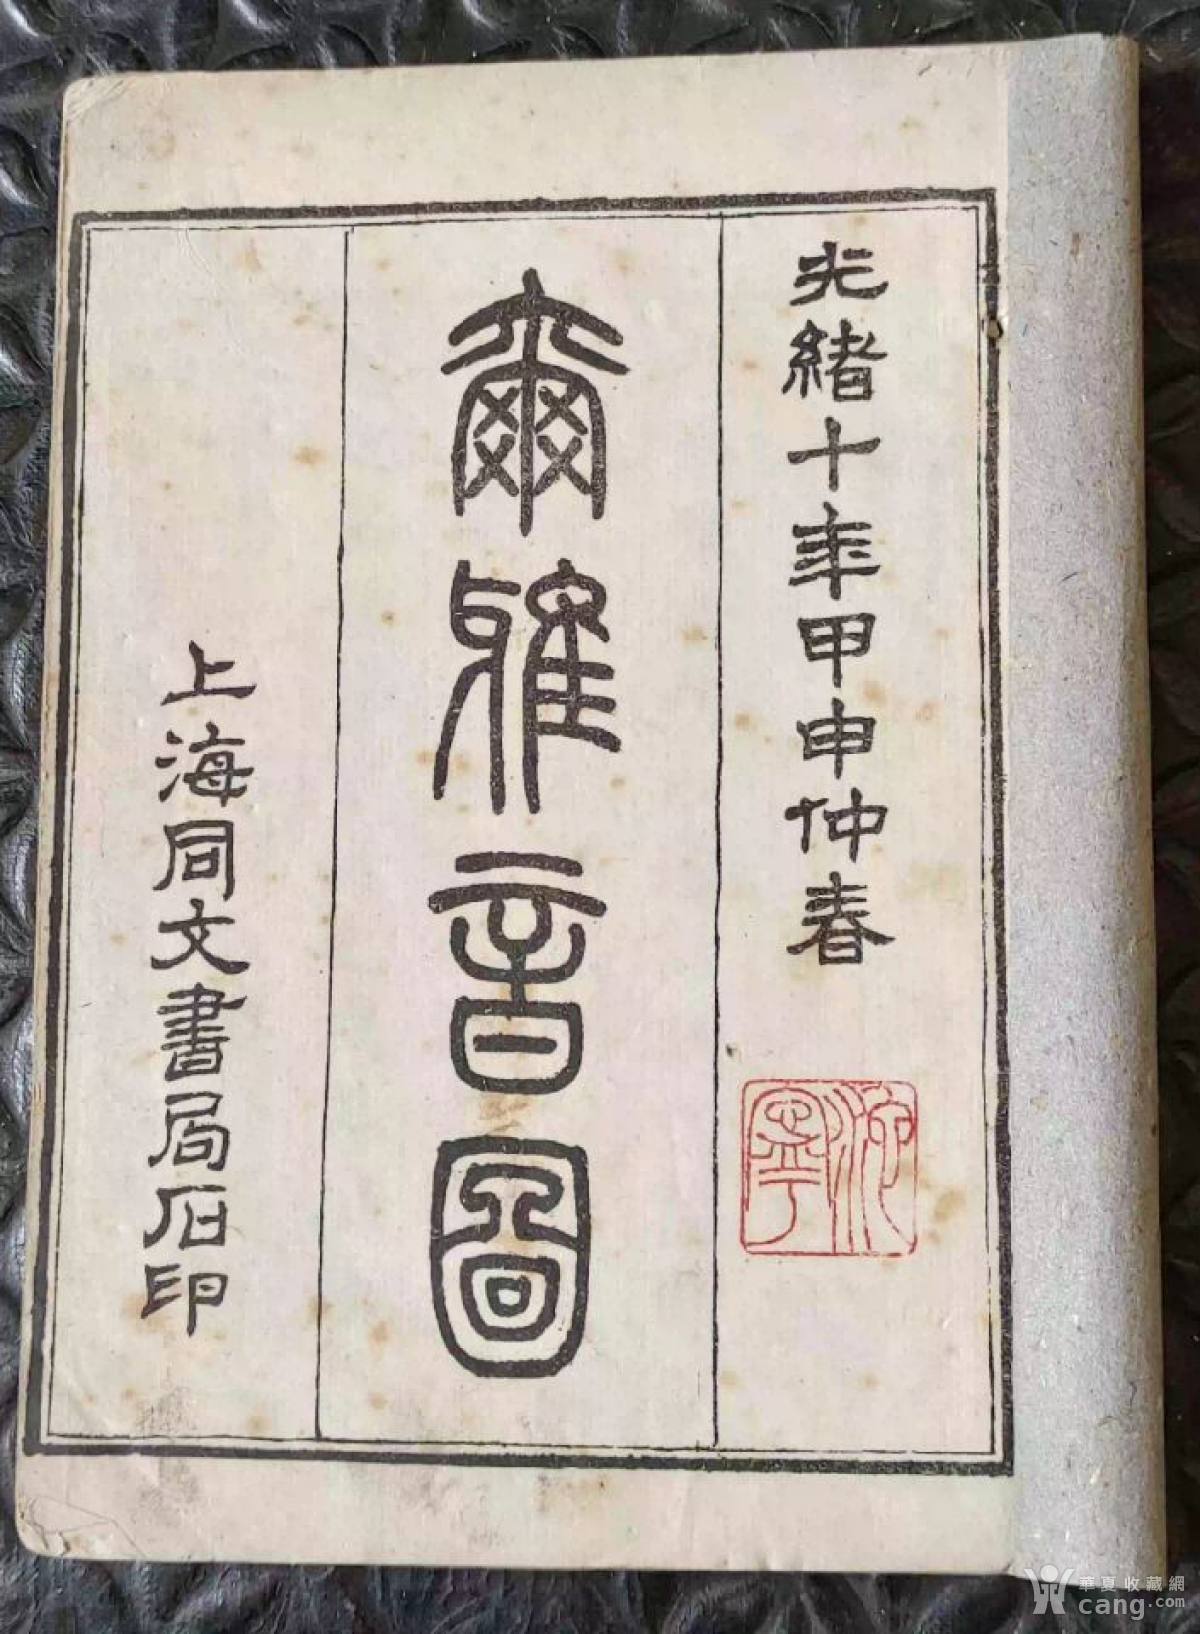 光緒十年甲申仲春
寧
爾雅音圖
上海同文書局石印
華夏收藏網
cang.com